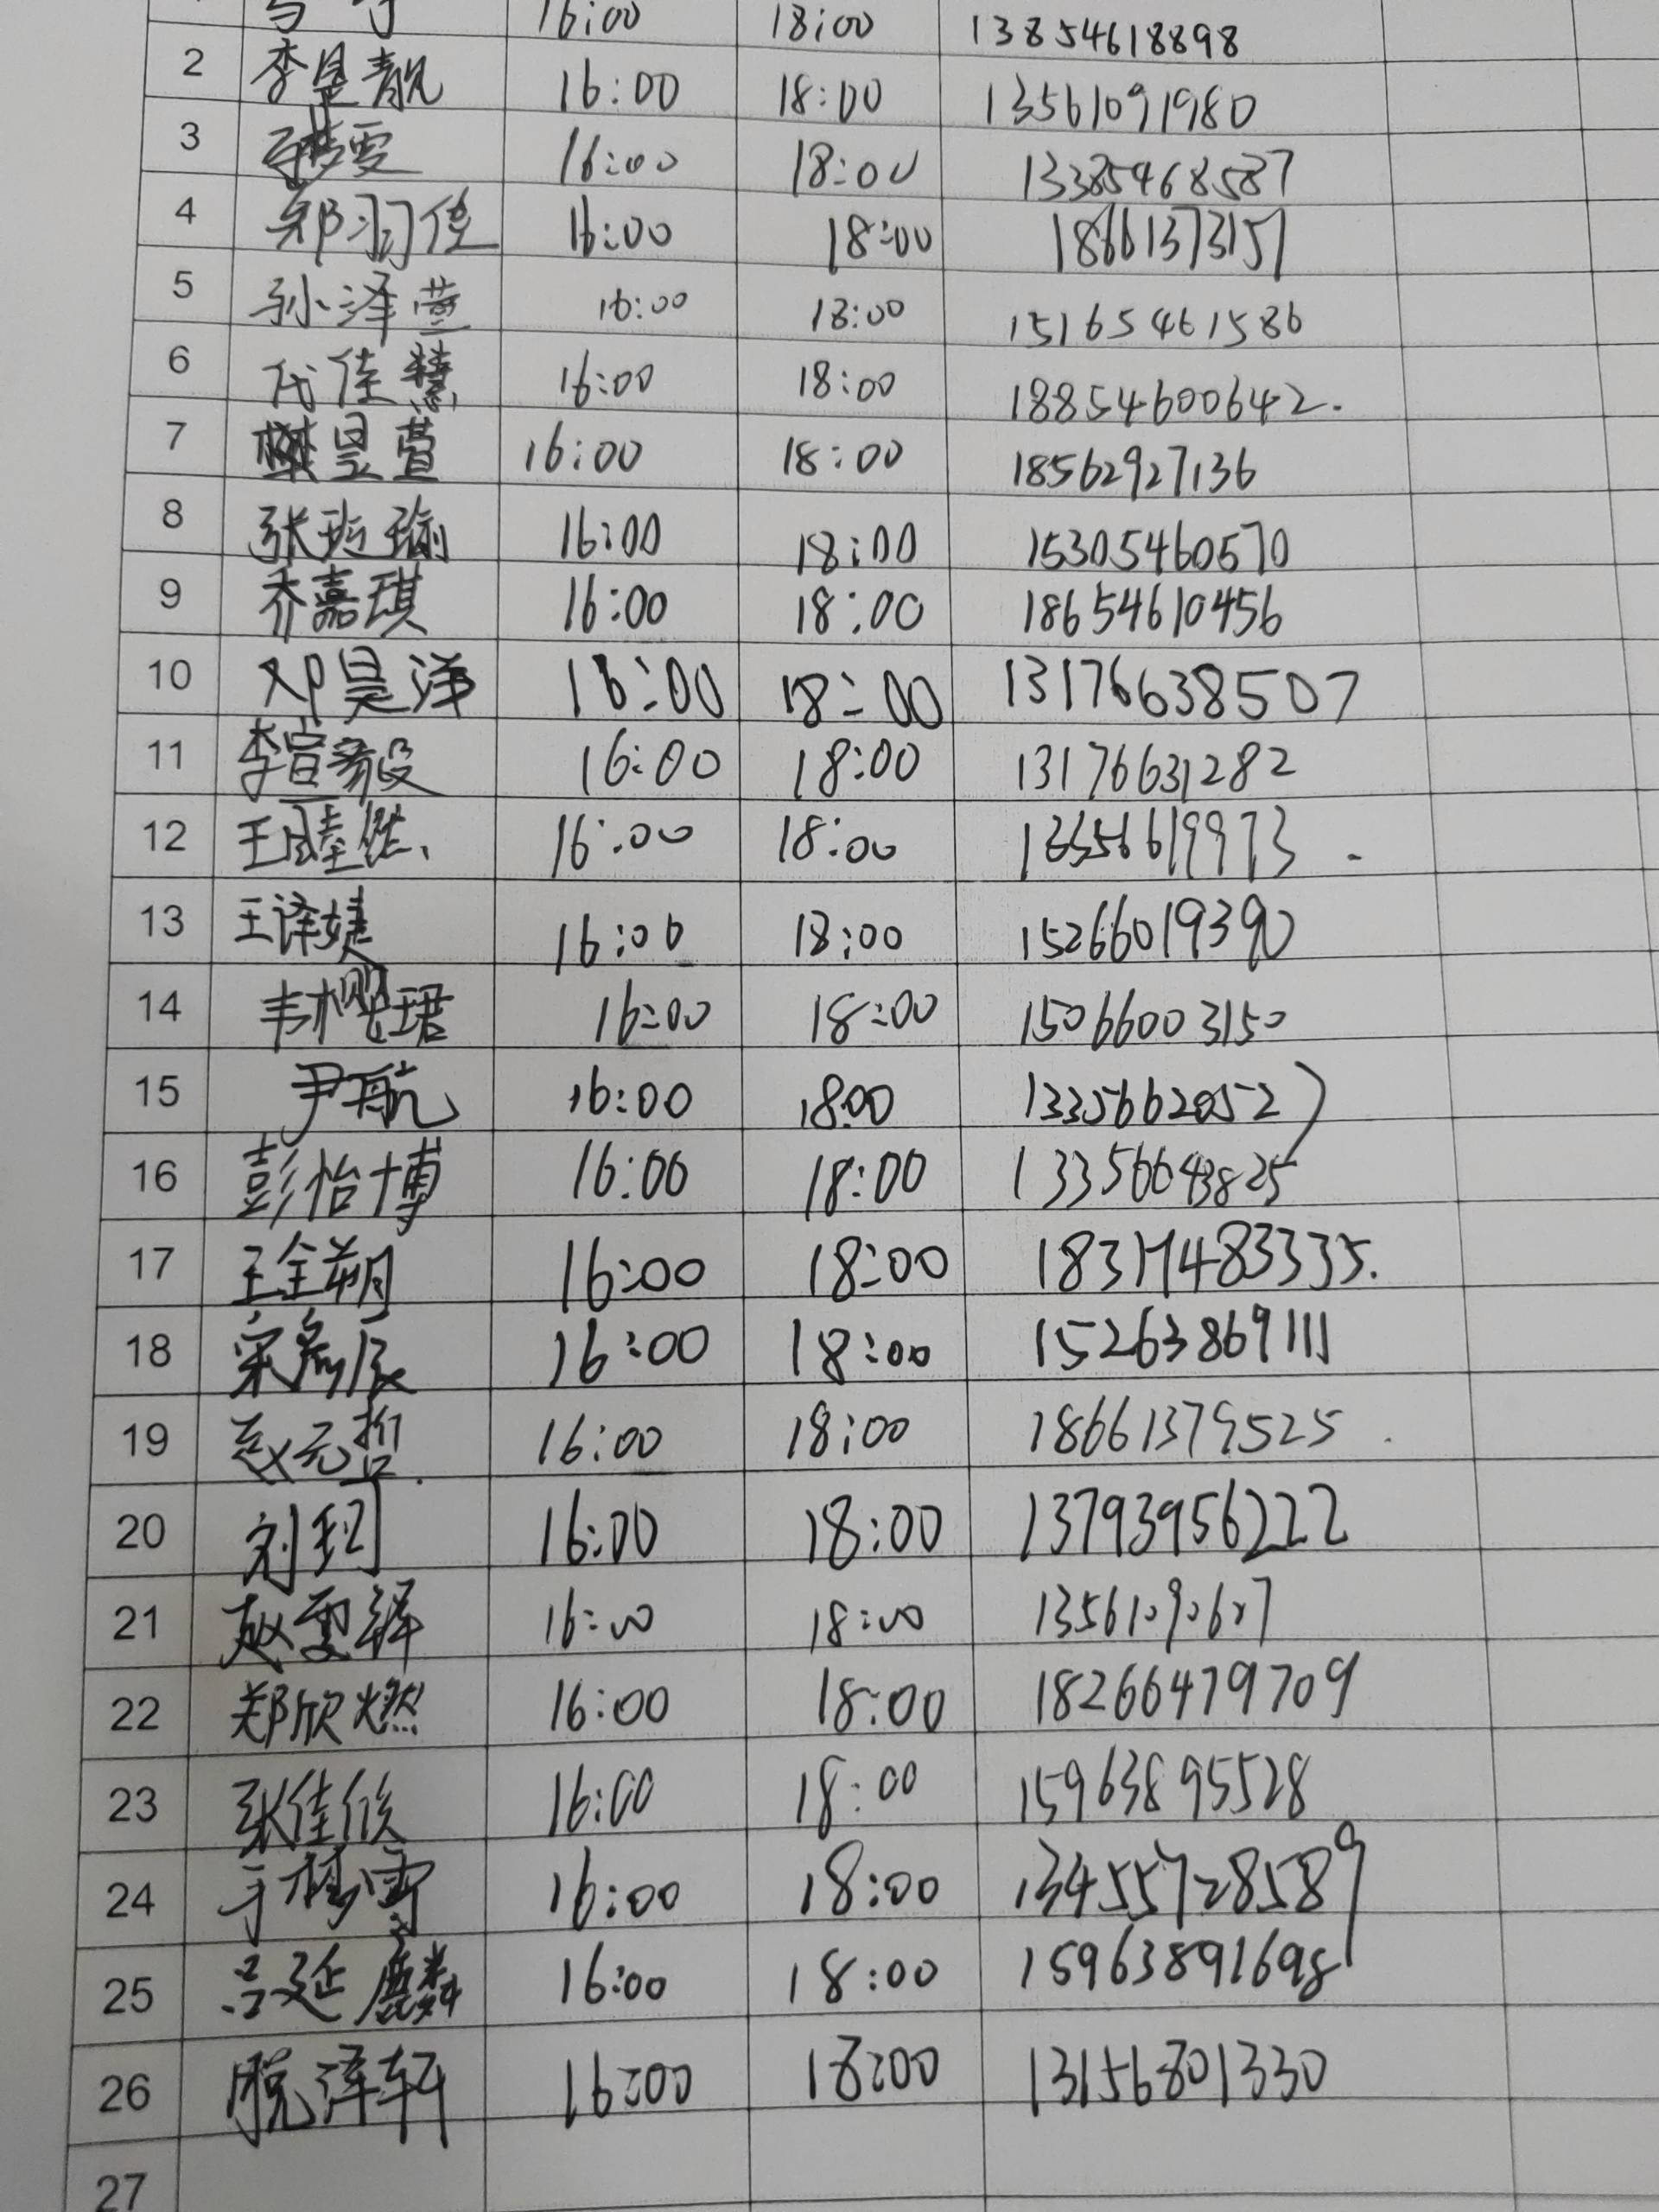 16:00 18:00 13854618898
2 李昰靓 16:00 18:00 13561091980
3 16:00 18:00 13385468587
4 郑羽佳 16:00 18:00 18661373157
5 孙泽萱 16:00 18:00 15165461586
6 代佳慧 16:00 18:00 18854600642.
7 樊昱萱 16:00 18:00 18562927136
8 张珈瑜 16:00 18:00 15305460570
9 乔嘉琪 16:00 18:00 18654610456
10 邓昊洋 16:00 18:00 13176638507
11 李宣毅 16:00 18:00 13176631282
12 王 16:00 18:00
13 王译婕 16:00 18:00 15266019390
14 韦樱珺 16:00 18:00 15066003150
15 尹航 16:00 18:00 13356620527
16 彭怡博 16:00 18:00 13356643825
17 王全朔 16:00 18:00 18317483335.
18 宋 辰 16:00 18:00 15263869111
19 赵元哲 16:00 18:00 18661379525
20 刘玥 16:00 18:00 13793956222
21 赵雯铎 16:00 18:00 13561090607
22 郑欣燃 16:00 18:00 18266479709
23 张佳欣 16:00 18:00 15963895528
24 于梦雪 16:00 18:00 13455728589
25 吕延麟 16:00 18:00 15963891698
26 脱泽轩 16:00 18:00 13156801330
27